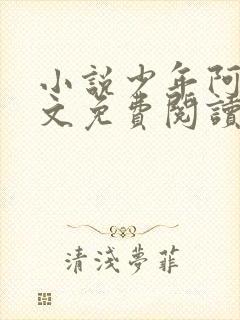 小說少年阿
文免費閱讀
清淺夢菲